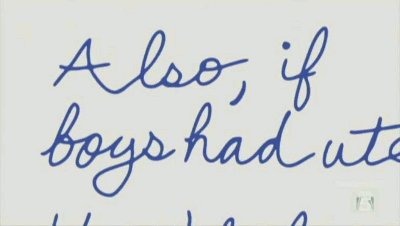 Also, if
boys had ute